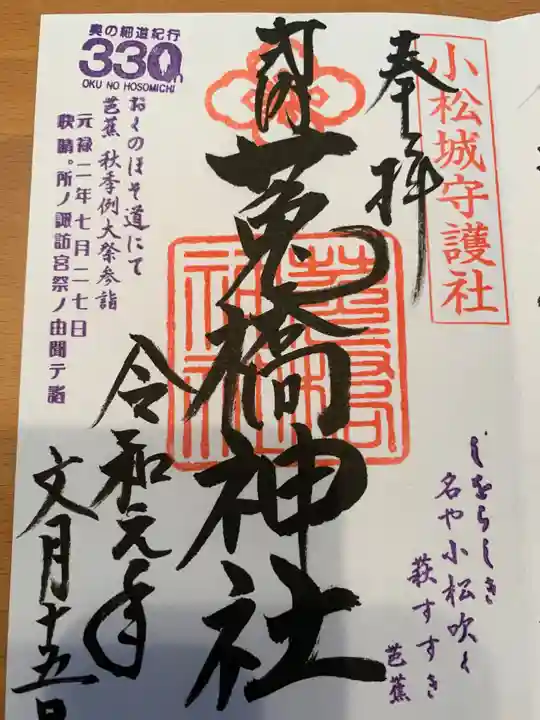 小松城守護社
奉拝
莵橋神社
令和元年
文月十五日
しをらしき
名や小松吹く
萩すすき
芭蕉
奥の細道紀行
330th
OKU NO HOSOMICHI
おくのほそ道にて
芭蕉 秋季例大祭参詣
元禄二年七月二七日
快晴。所ノ諏訪宮祭ノ由聞テ詣